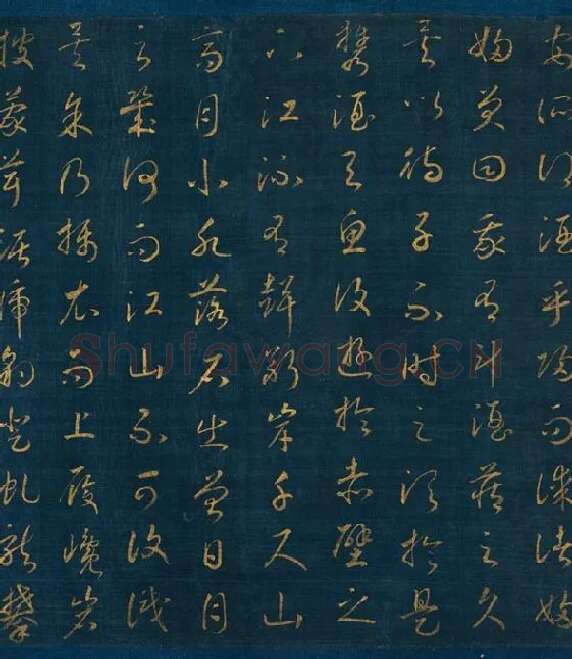 安所得酒乎歸而謀諸婦
婦笑曰我有斗酒藏之久
矣以待子不時之須於是
攜酒與魚復遊於赤壁之
下江流有聲斷岸千尺山
高月小水落石出曾日月
之幾何而江山不可復識
矣余乃攝衣而上履巉岩
披蒙茸踞虎豹登虬龍攀
Shufawang.CN